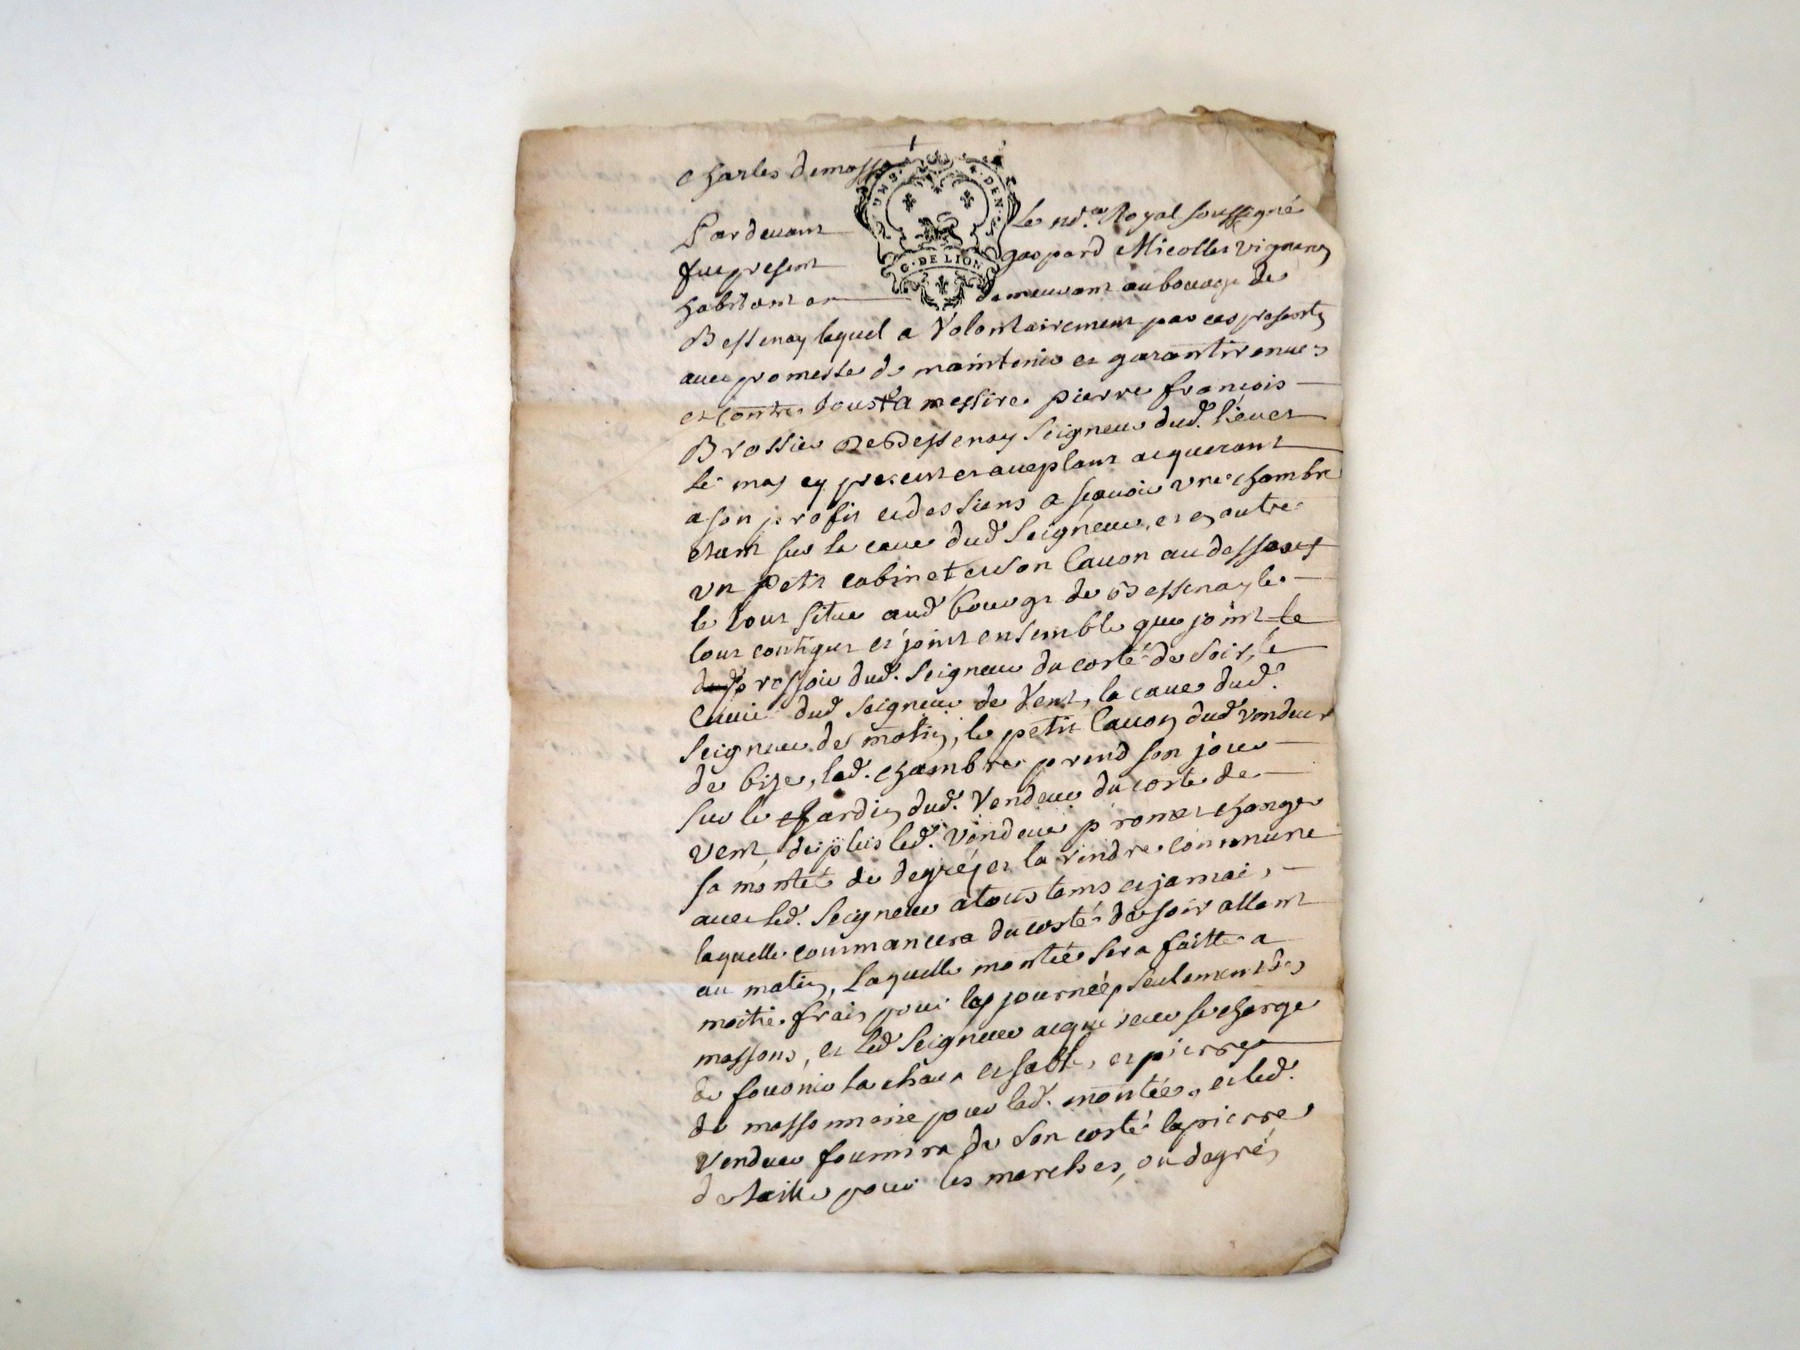 Charles demasso
G. DE LION
Pardevant le no.re Royal soussigné
fut present gaspard Micollet vigneron
habitant et demeurant au bourg de
Bessenay lequel a Volontairement par ces presentes
avec promesse de maintenir et garantir envers
et contre tous a messire pierre françois
Brossier De Bessenay Seigneur dud. lieu et
le mas cy present et acceptant acquerant
a son profit et des siens a sçavoir une chambre
etant sur la cave dud. Seigneur, et en outre
un petit cabinet et son Cavon au dessous
le tout situe aud. bourg de Bessenay le
tout contigus et joint ensemble que joint le
pressoir dud. Seigneur du costé de soir, le
Cuvier dud. Seigneur de Vent, la cave dud.
Seigneur de matin, le petit Cavon dud. vendeur
de bize, lad. chambre prend son jour
sur le jardin dud. Vendeur du costé de
vent, de plus led. Vendeur promet changer
sa montée de degrés et la rendre commune
avec led. Seigneur a tous tems et jamais,
laquelle commancera du costé de soir allant
au matin, Laquelle montée sera faitte a
moitie frais pour les journées seulement des
massons, et led. Seigneur acquereur se charge
de fournir la chaux et sable, et pierres
de massonnerie pour lad. montée, et led.
Vendeur fournira de son costé la pierre
de taille pour les marches, ou degrés